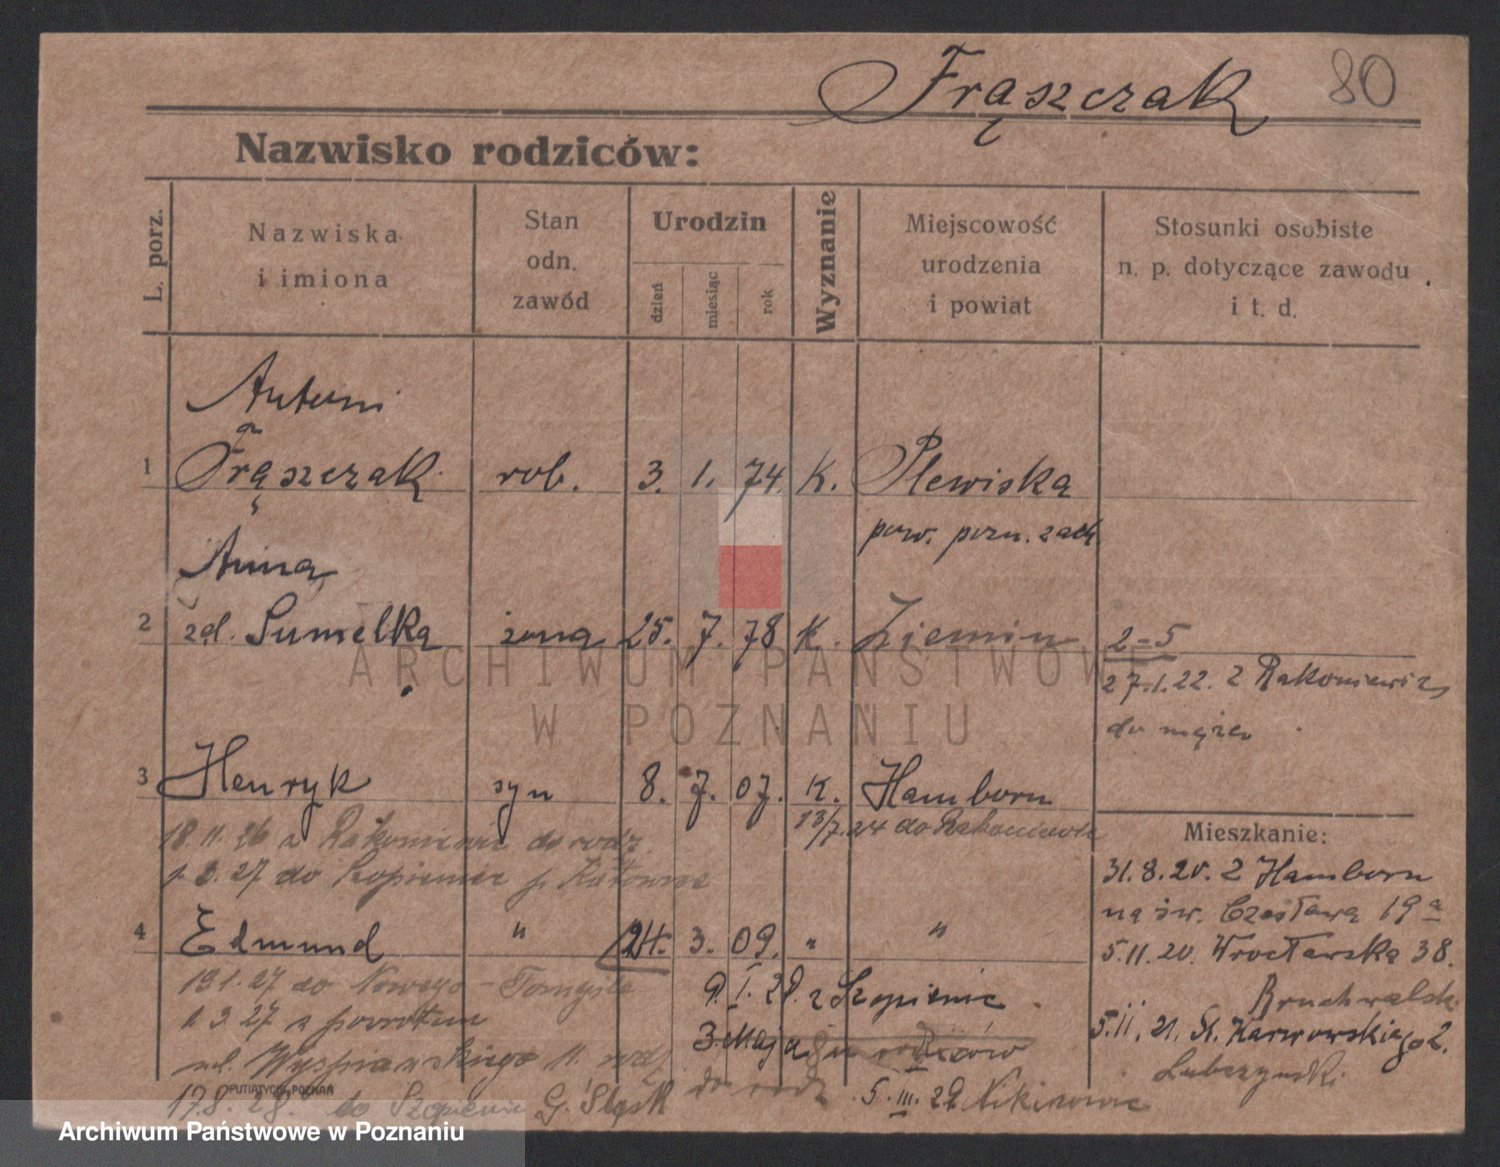 Frąszczak 80
Nazwisko rodziców:
L. porz.
Nazwiska i imiona
Stan odn. zawód
Urodzin
dzień miesiąc rok
Wyznanie
Miejscowość urodzenia i powiat
Stosunki osobiste n. p. dotyczące zawodu i t. d.
Antoni
1 Frąszczak rob. 3. 1. 74. K. Plewiska
pow. pozn. zach.
Anna
2 zd. Sumelka żona 25. 7. 78 K. Ziemin 2-5
27.1.22. z Rakoniewic
do męża
3 Henryk syn 8. 7. 07. K. Hamborn
13/7.24 do Rakoniewic
18.11.26 z Rakoniewic do rodz.
Mieszkanie:
31.8.20. z Hamborn
na św. Czesława 19a
3.27 do Szopienic p. Katowice
4 Edmund " 24. 3. 09. " "
5.11.20. Wrocławska 38.
19.1.27 do Nowego-Tomyśla
9. I. 28. z Szopienic
1.3.27 z powrotem
3 Maja
rodziców
5.11.21. St. Karwowskiego 2.
ul. Wyspiańskiego 11. rodz.
do rodz
PUTIATYCKI, POZNAŃ
17.8.28. do Szopienic G. Śląsk
5. III. 29
ARCHIWUM PAŃSTWOWE
W POZNANIU
Archiwum Państwowe w Poznaniu